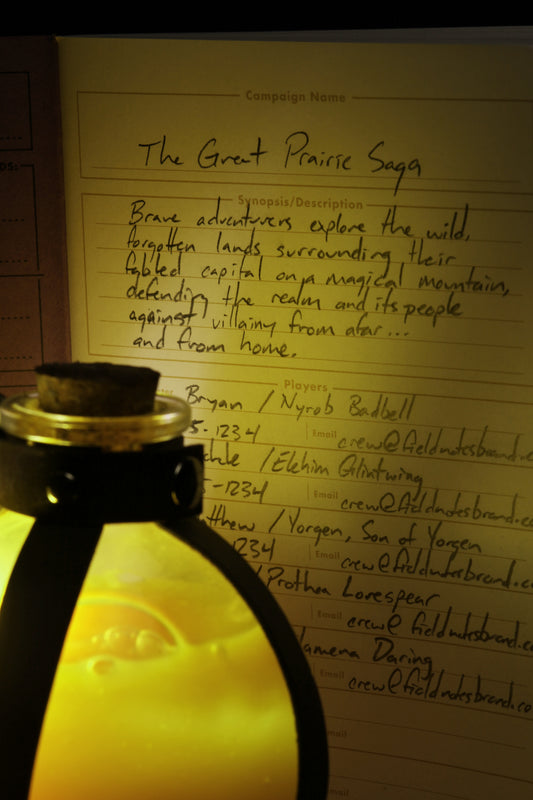 DS:
Campaign Name
The Great Prairie Saga
Synopsis/Description
Brave adventurers explore the wild,
forgotten lands surrounding their
fabled capital on a magical mountain,
defending the realm and its people
against villainy from afar...
and from home.
Players
Bryan / Nyrob Badbell
5-1234 Email crew@fieldnotesbrand.c
/ Elehim Glintwing
5-1234 Email crew@fieldnotesbrand.co
tthew / Yorgen, Son of Yorgen
1234 Email crew@fieldnotesbrand.co
/ Prothea Lorespear
Email crew@fieldnotesbrand.co
lamena Daring
Email crew@fieldnotesbrand.co
Email
Email